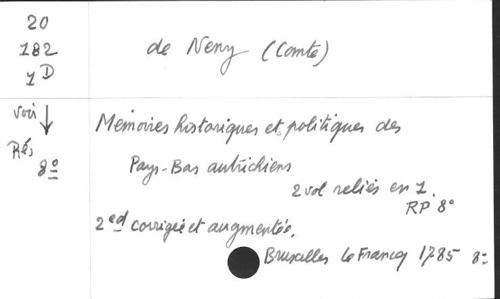 20
182
1 D
voir
Rés
8º
de Neny (Comte)
Mémoires historiques et politiques des
Pays-Bas autrichiens
2 vol reliés en 1.
RP 8°
2 ed corrigée et augmentée.
Bruxelles le Francq 1785 8º